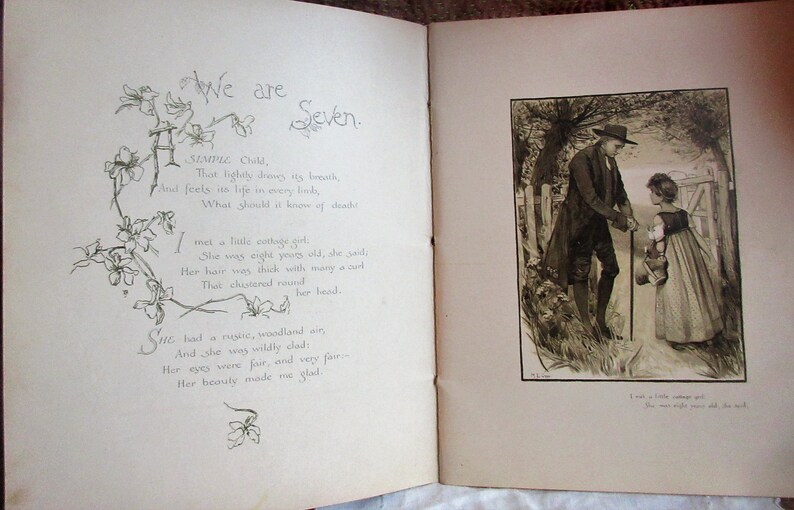 We are
Seven.
A SIMPLE Child,
That lightly draws its breath,
And feels its life in every limb,
What should it know of death?
I met a little cottage girl:
She was eight years old, she said;
Her hair was thick with many a curl
That clustered round
her head.
SHE had a rustic, woodland air,
And she was wildly clad:
Her eyes were fair, and very fair:—
Her beauty made me glad.
I met a little cottage girl:
She was eight years old, she said;